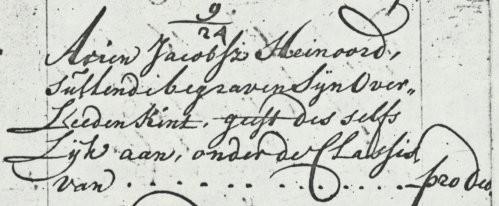 9/24
Arien Jacobsz Heinoord,
Sullende begraven Sÿn Over„
Leeden Kint, geeft des selfs
Lÿk aan, onder de Classis
van . . . . . . . . . . pro deo